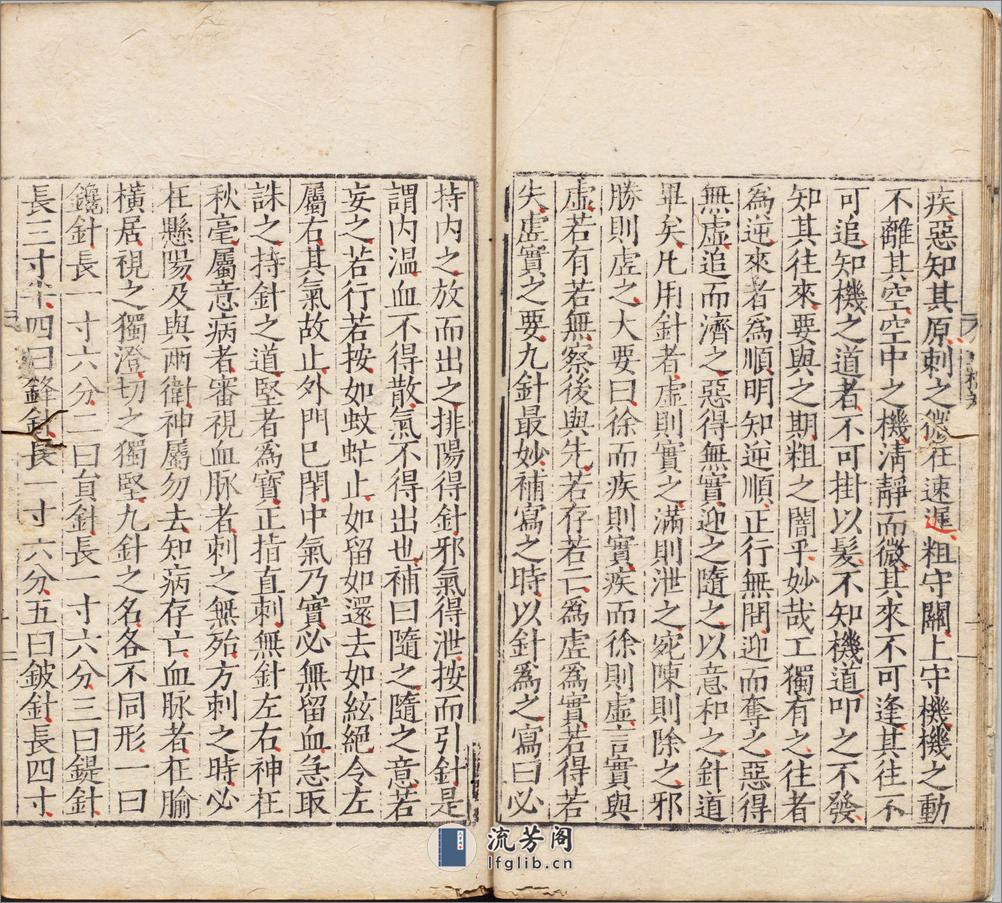 疾惡知其原刺之微在速遲粗守關上守機機之動
不離其空空中之機清靜而微其來不可逢其往不
可追知機之道者不可掛以髮不知機道叩之不發
知其往來要與之期粗之闇乎妙哉工獨有之往者
為逆來者為順明知逆順正行無問迎而奪之惡得
無虛追而濟之惡得無實迎之隨之以意和之針道
畢矣凡用針者虛則實之滿則泄之宛陳則除之邪
勝則虛之大要曰徐而疾則實疾而徐則虛言實與
虛若有若無察後與先若存若亡為虛為實若得若
失虛實之要九針最妙補寫之時以針為之寫曰必
持內之放而出之排陽得針邪氣得泄按而引針是
謂內溫血不得散氣不得出也補曰隨之隨之意若
妄之若行若按如蚊虻止如留如還去如絃絕令左
屬右其氣故止外門已閉中氣乃實必無留血急取
誅之持針之道堅者為寶正指直刺無針左右神在
秋毫屬意病者審視血脉者刺之無殆方刺之時必
在懸陽及與兩衛神屬勿去知病存亡血脉者在腧
橫居視之獨澄切之獨堅九針之名各不同形一曰
鑱針長一寸六分二曰員針長一寸六分三曰鍉針
長三寸半四曰鋒針長一寸六分五曰鈹針長四寸
流芳阁
lfglib.cn